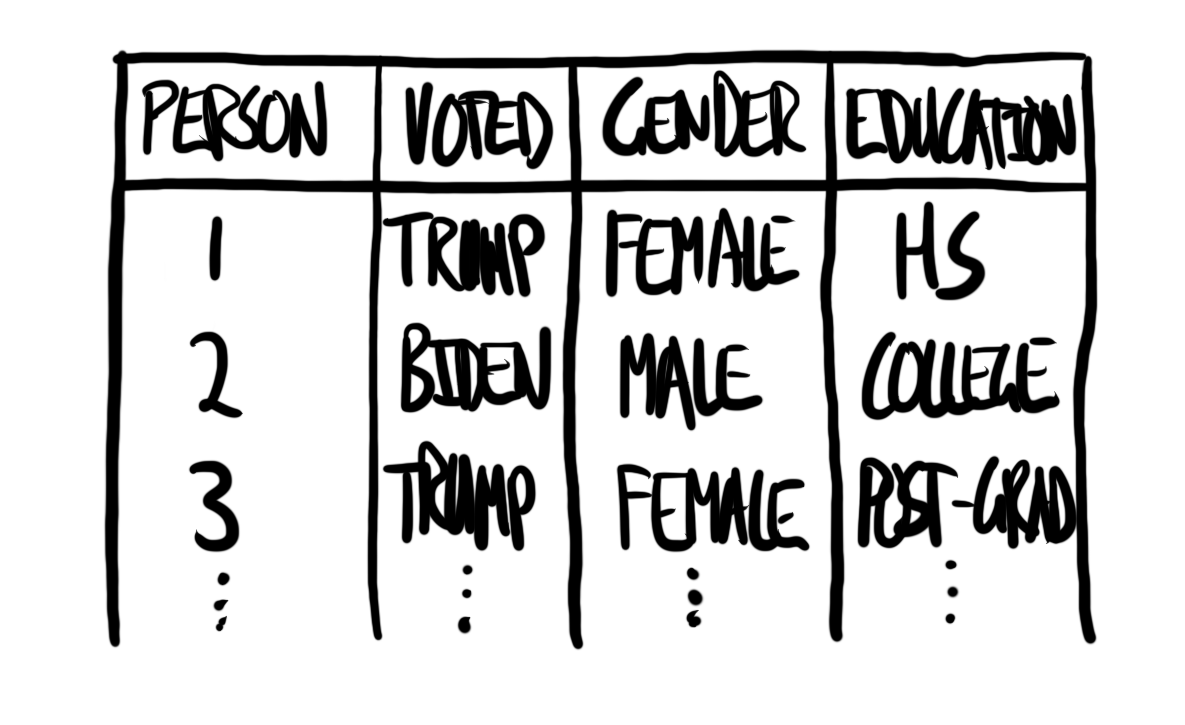 PERSON VOTED GENDER EDUCATION
1 TRUMP FEMALE HS
2 BIDEN MALE COLLEGE
3 TRUMP FEMALE POST-GRAD